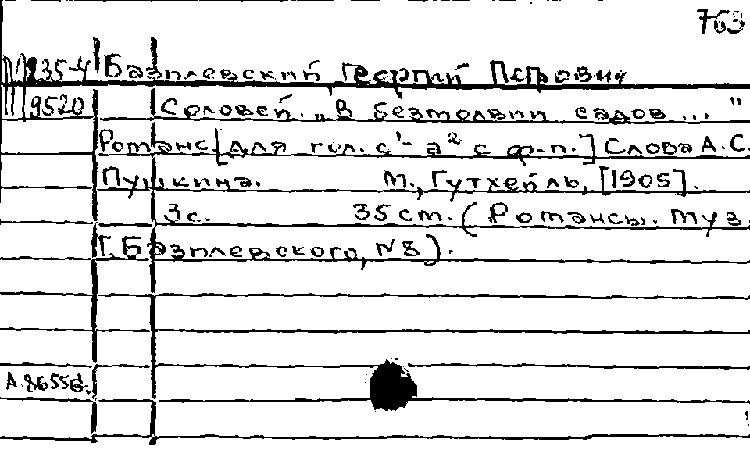 763
235-4 Базилевский, Георгий Петрович
9520 Соловей. „В безмолвии садов..."
Романс [для гол. c¹- a² с ф-п.] Слова А.С.
Пушкина. М., Гутхейль, [1905].
3с. 35 см. (Романсы. муз.
Г. Базилевского, №8).
А.8655б.